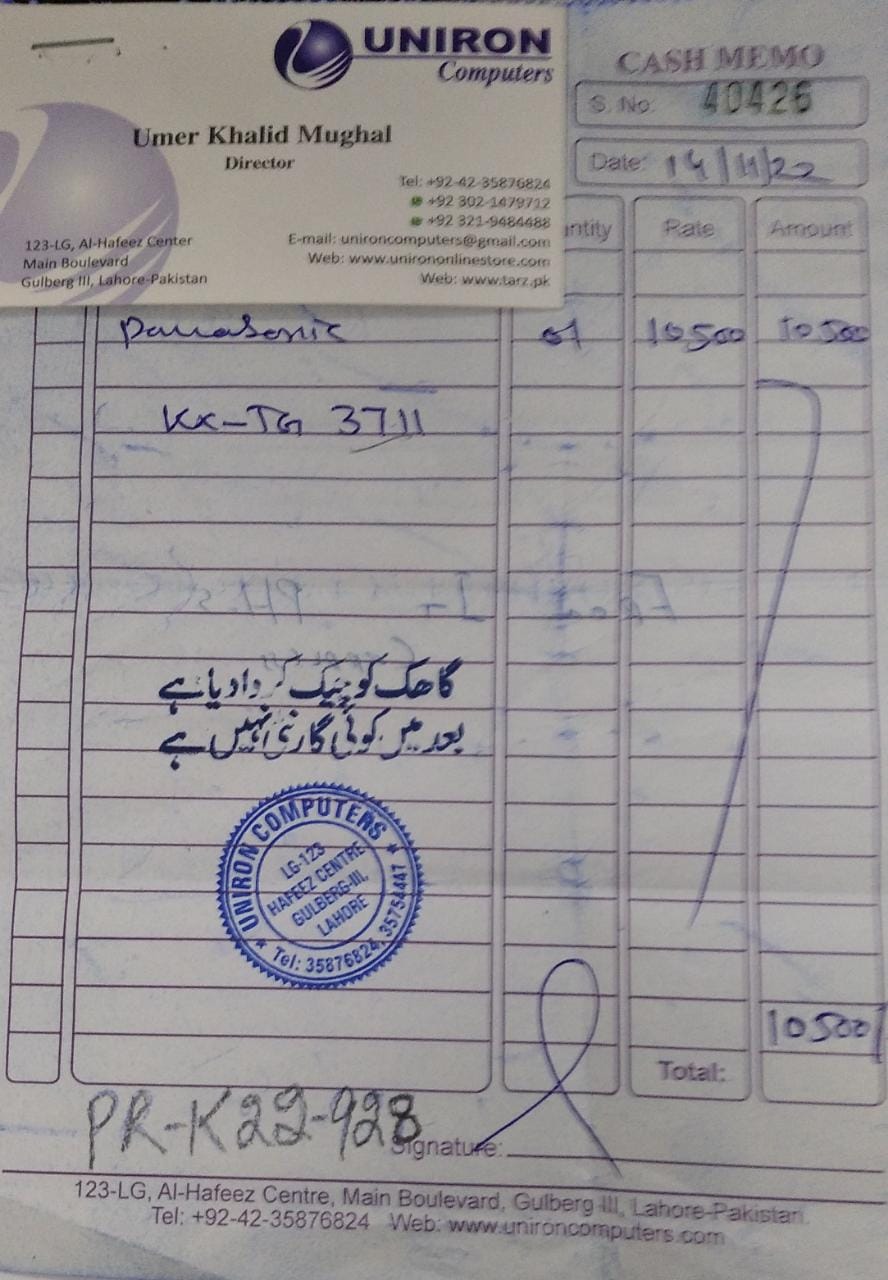 UNIRON
Computers
Umer Khalid Mughal
Director
Tel: +92-42-35876824
+92 302-1479712
+92 321-9484488
E-mail: unironcomputers@gmail.com
Web: www.unirononlinestore.com
Web: www.tarz.pk
123-LG, Al-Hafeez Center
Main Boulevard
Gulberg III, Lahore-Pakistan
CASH MEMO
S. No: 40426
Date: 14/11/22
ntity Rate Amount
Panasonic 01 10,500 10,500
KX-TG 3711
گاھک کو چیک کروادیا ہے
بعد میں کوئی گارنٹی نہیں ہے
UNIRON COMPUTERS
LG-123
HAFEEZ CENTRE
GULBERG-III,
LAHORE
Tel: 35876824, 35754447
10500/
Total:
PR-K22-928
Signature:
123-LG, Al-Hafeez Centre, Main Boulevard, Gulberg III, Lahore-Pakistan.
Tel: +92-42-35876824 Web: www.unironcomputers.com